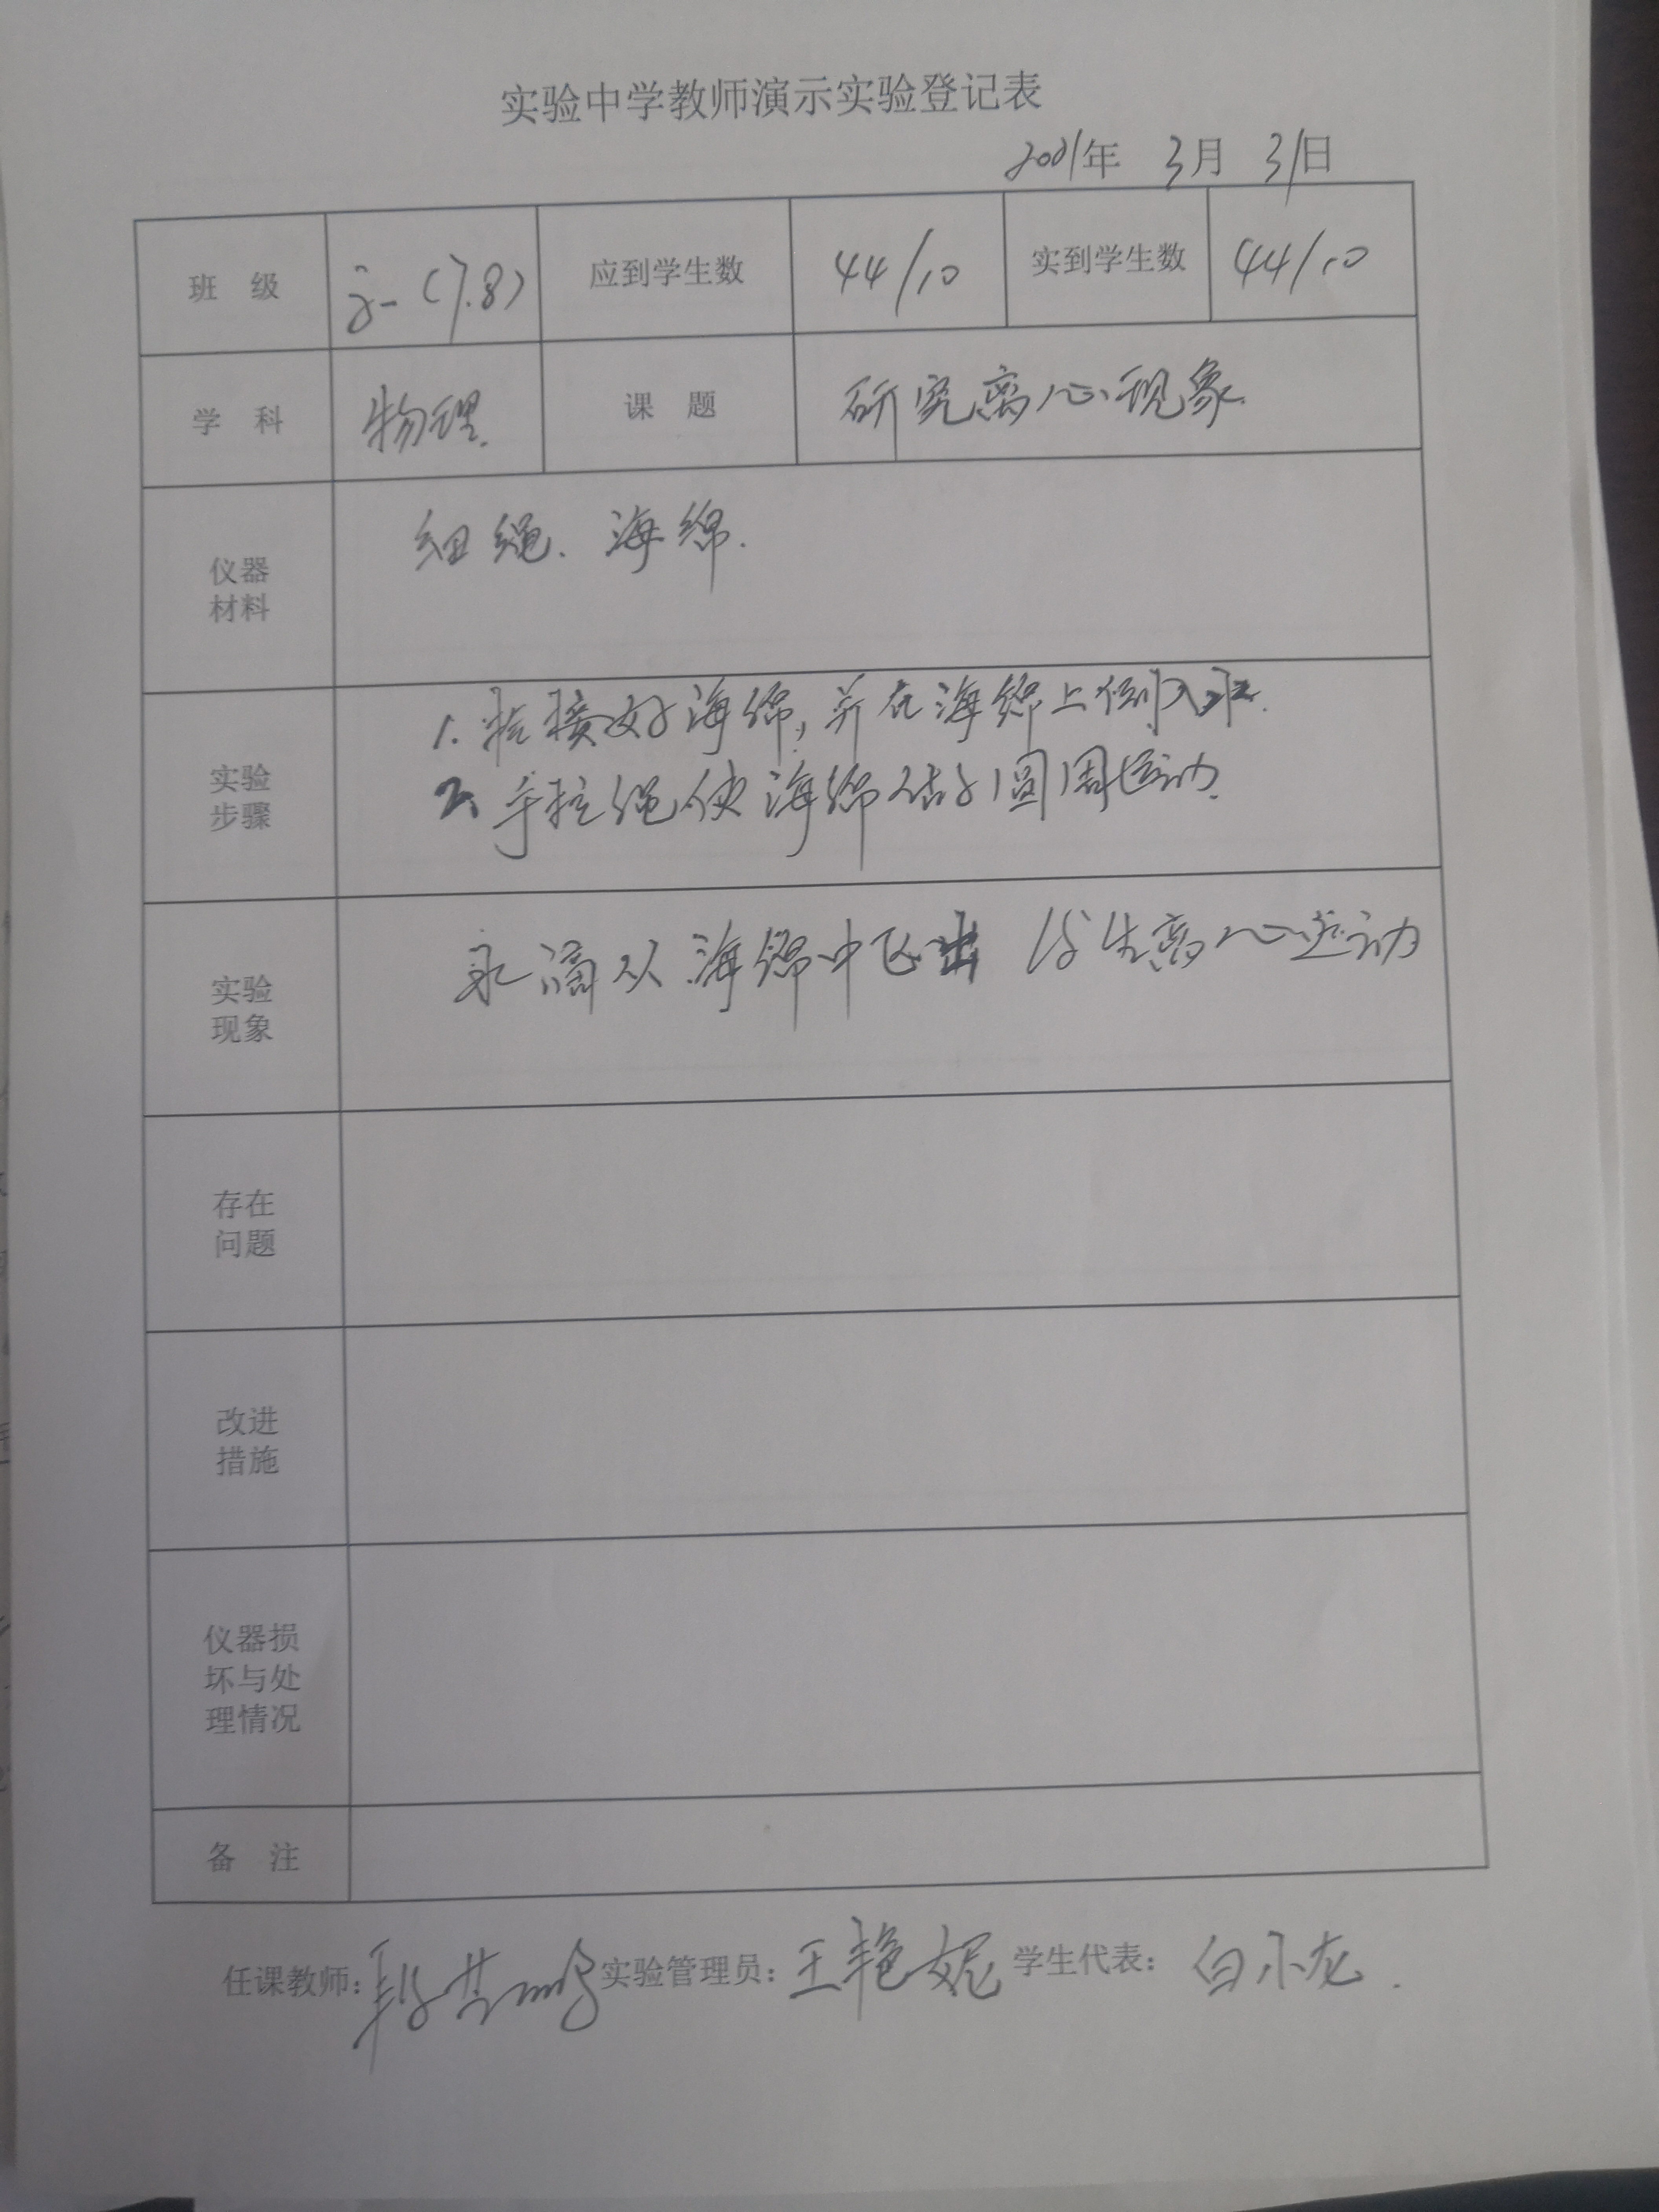 实验中学教师演示实验登记表
2021年 3月 31日
班 级 高一(7.8) 应到学生数 44/10 实到学生数 44/10
学 科 物理 课 题 研究离心现象.
仪器
材料
细绳、海绵.
实验
步骤
1. 拴接好海绵,并在海绵上倒入水.
2. 手拉绳使海绵做圆周运动.
实验
现象
水滴从海绵中飞出 发生离心运动
存在
问题
改进
措施
仪器损
坏与处
理情况
备 注
任课教师: 实验管理员:王艳妮 学生代表:白小龙.